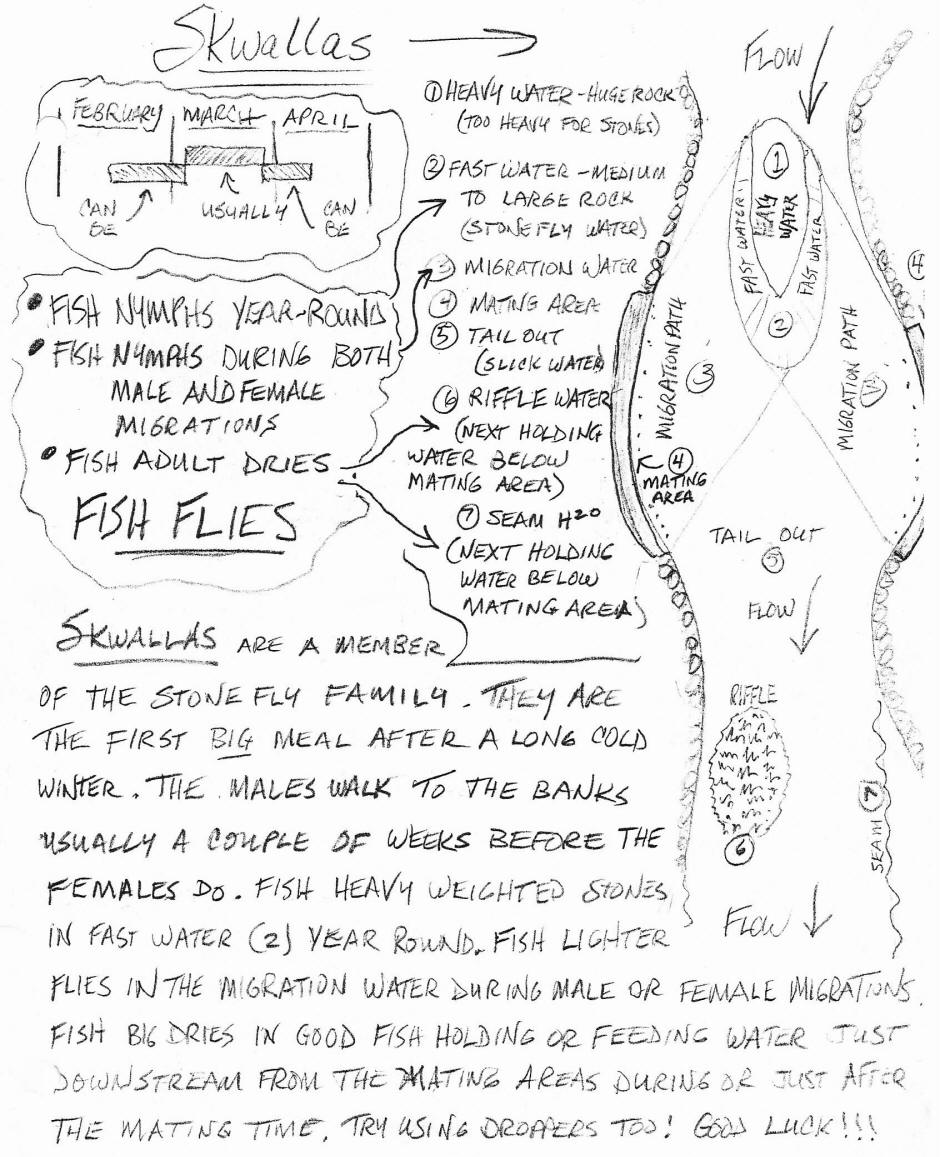 SKwallas
FEBRUARY MARCH APRIL
CAN BE USUALLY CAN BE
• FISH NYMPHS YEAR-ROUND
• FISH NYMPHS DURING BOTH
MALE AND FEMALE
MIGRATIONS
• FISH ADULT DRIES
FISH FLIES
① HEAVY WATER - HUGE ROCK
(TOO HEAVY FOR STONES)
② FAST WATER - MEDIUM
TO LARGE ROCK
(STONEFLY WATER)
③ MIGRATION WATER
④ MATING AREA
⑤ TAIL OUT
(SLICK WATER)
⑥ RIFFLE WATER
(NEXT HOLDING
WATER BELOW
MATING AREA)
⑦ SEAM H2O
(NEXT HOLDING
WATER BELOW
MATING AREA)
FLOW
①
HEAVY
WATER
FAST WATER
FAST WATER
②
④
MIGRATION PATH
③
MIGRATION PATH
④
MATING
AREA
TAIL OUT
⑤
FLOW
RIFFLE
⑥
SEAM ⑦
FLOW
SKWALLAS ARE A MEMBER
OF THE STONEFLY FAMILY. THEY ARE
THE FIRST BIG MEAL AFTER A LONG COLD
WINTER. THE MALES WALK TO THE BANKS
USUALLY A COUPLE OF WEEKS BEFORE THE
FEMALES DO. FISH HEAVY WEIGHTED STONES
IN FAST WATER (2) YEAR ROUND. FISH LIGHTER
FLIES IN THE MIGRATION WATER DURING MALE OR FEMALE MIGRATIONS.
FISH BIG DRIES IN GOOD FISH HOLDING OR FEEDING WATER JUST
DOWNSTREAM FROM THE MATING AREAS DURING OR JUST AFTER
THE MATING TIME. TRY USING DROPPERS TOO! GOOD LUCK!!!